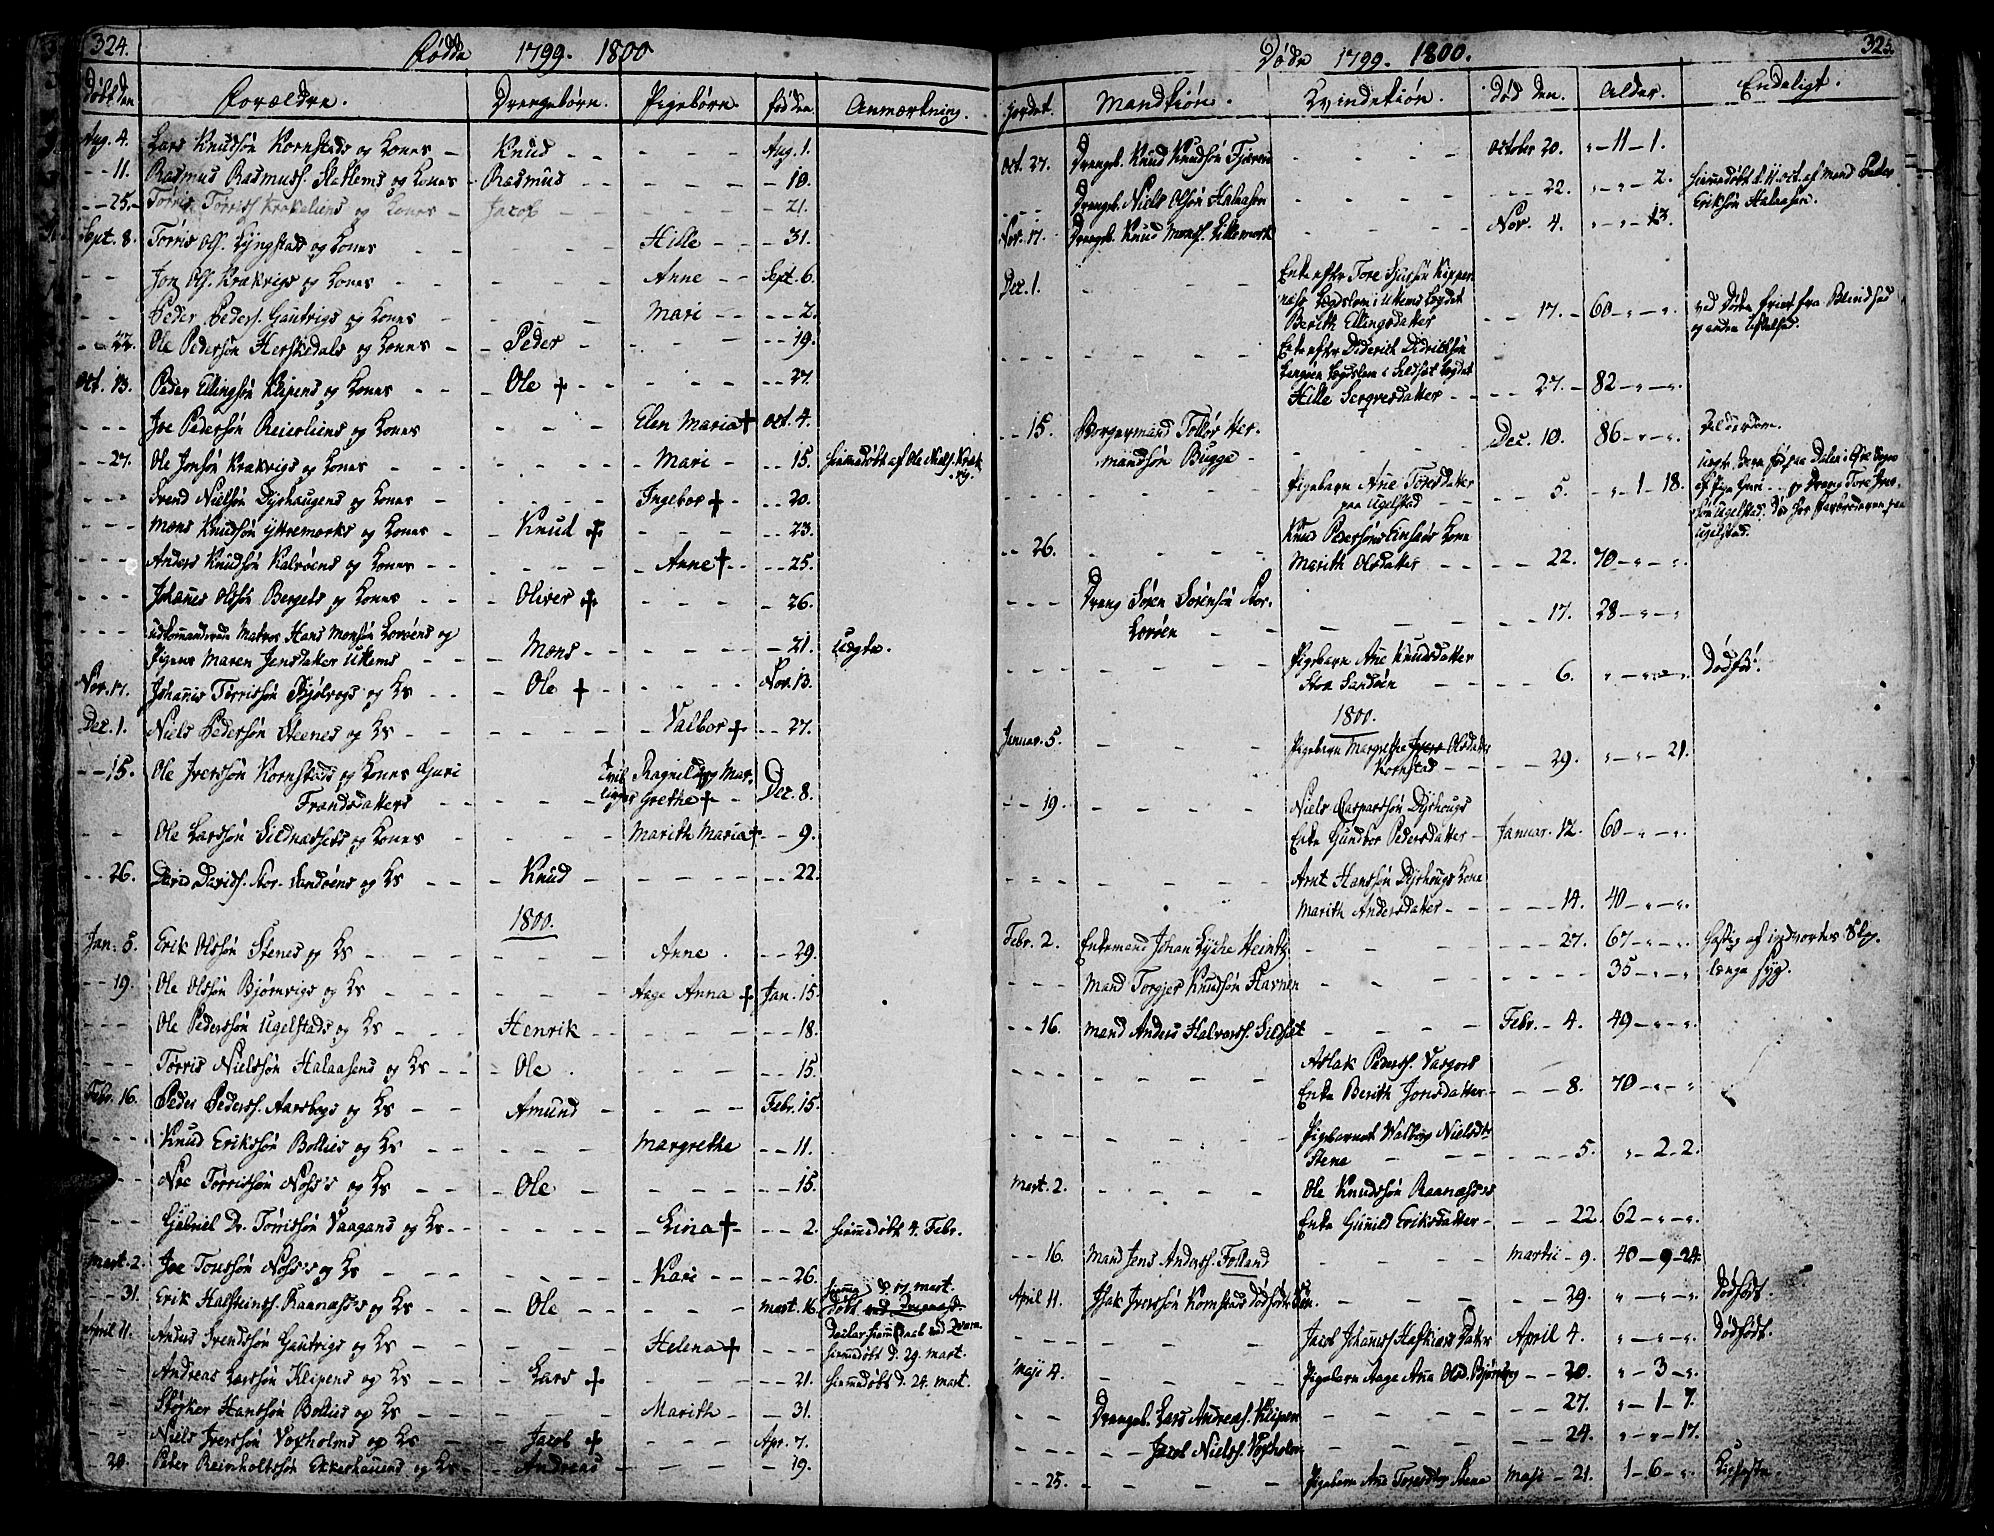 324.
Fødde 1799. 1800
Døbt den Forældre. Drengebørn. Pigebørn. fødden Anmærkning.
Aug. 4. Lars Knudsøn Kornstads og Kones - Knud - - Aug. 1.
- - 11. Rasmus Rasmuss. og Kones - Rasmus - - - 10.
- - 25. Tørris Torriss. Krakeliens og Kones - Jacob - - 21.
Sept. 8. Torris Ols. Lyngstads og Kones Hille - - - 31.
- - Jon Ols. Krakvigs og Kones - - Anne - - Sept. 6.
- - Peder Peders. Gautvigs og Kones - Mari - - - 2.
- - 22. Ole Pedersøn Herskedals og Kones - Peder - - - 19.
Oct. 13. Peder Ellingsøn Klipens og Kones - - Ole + - - - 27.
- - - Ive Pedersøn Reierliens og Kones Elen Maria + Oct. 4.
- - 27. Ole Jonsøn Krakvigs og Kones - - Mari - - - 15. hiemmedøbt af Ole Niels. Krakvig.
- - - Svend Nielsøn Dyshaugens og Kones - Ingebor + - - 20.
- - - Mons Knudsøn Yttremarks og Kones - Knud + - - 23.
- - Anders Knudsøn Kalvøens og Kones - - Anne + - - 25.
- - - Johannes Olsøn Bergets og Kones - - Oliver + - - 26.
- - - udkommanderede Matros Hans Monsøn og
Pigens Maren Jensdatter Utkems - - Mons - - - 21. Uægte.
Nov. 17. Johannes Torrissøn og Ks - - Ole + - - - Nov. 13.
Dec. 1. Niels Pedersøn Steenes og Ks - - Valbor + - - 27.
- - 15. Ole Iverssøn Kornstads og Kones Guri Tvillinger Ragnild og Mar-
Frandsdatters - - Grethe + - Dec. 8.
- - Ole Larssøn Sildnæssets og Kones Marith Maria + - 9.
- - 26. David Davids. Stor-Sandøens og Ks - - Knud - - - 22.
1800.
Jan. 5. Erik Olssøn Stenes og Ks - - Anne. - - 29.
- - 19. Ole Olssøn Bjørnvigs og Ks - - Aage Anna + Jan. 15.
- - - Ole Pederssøn Ugelstads og Ks - - Henrik - - - 18.
- - - Tørris Nielssøn Halaasens og Ks - - Ole - - - 15.
Febr. 16. Peder Pederss. Aarsbogs og Ks - - Amund - - Febr. 15.
- - - Knud Erikssøn Bollies og Ks - - Margrethe - - 11.
- - Noe Torrissøn Noss's og Ks - - Ole - - - 15.
- - - Gabriel Dr. Tørrissøn Vaagans og Ks - - Lina + - - 2. hiemmedøbt 4. Febr.
Mart. 2. Ive Torssøn Noss's og Ks - - Kari - - - 26.
- - 31. Erik Halsteinss. Raanæss's og Ks - - Ole - - - Mart. 16. hiemmedøbt d. 17. mart.
April 11. Anders Svendssøn Gautvigs og Ks - - Helena + - - - hiemmedøbt d. 29. mart.
- - Andreas Larssøn Klipens og Ks - - Lars + - - - 21. hiemmedøbt d. 24. mart.
- - Hanssøn Bollies og Ks - - Marith - - 31.
- - Niels Iverssøn Voxholms og Ks - - Jacob + - - - Apr. 7.
- 20. Peder Reinholtssøn Ekkerhaugens og Ks - - Andreas - - - 19.
325.
Døde 1799. 1800.
Jordet. Mandkiøn. Kvindekiøn. Død den. Alder. Endeligt.
Oct. 27. Drengeb. Knud Knudsøn - - October 20. " - 11 - 1.
- - - Drengeb. Niels Olsøn Halaasen - - - 22. " - " - 2. hiemmedøbt d. 11. oct. af Mand Peder
Eriksøn Halaasen.
Nov. 17. Drengeb. Knud Mons. - - Nov. 4. " - " - 13.
Dec. 1. - - Enke efter Tore
Lægdslem i Utkems Lægdet
Berith Ellingsdatter - - 17. - 60 - " - ". ved Døden friet fra Blindhed
og anden
- - - Enke efter Diderich Didrichsøn
Lægdslem i Sildset Lægdet
Hille Sergvesdatter - - 27. - 82 - " - ".
- - 15. Borgermand Toller Her-
mandsøn Bugge - - Dec. 10. 86 - " - ". Alderdom.
- - Pigebarn Ane Toresdatter
paa Ugelstad - - 5. " - 1 - 18.
Ugelstad.
- - 26. - - Knud Pedersøns Kone
Marith Olsdatter - - 22. 70 - " - ".
- - - Dreng Søren Sørensøn Stor-
- - - 17. 28 - " - "
- - - Pigebarn Ane Knudsdatter
Stoa Sandøen - - 6. " - " - " - Dødfød.
1800.
Januar. 5. - - Pigebarn Margrethe Olsdatter
Kornstad - - 29. " - " - 21.
- - 19. - - Niels Casparssøn Dyshougs
Enke Gundbor Pedersdatter - Januar. 12. 60 - " - ".
- - - Arnt Hanssøn Dyshougs Kone
Marith Andersdatter - - - 14. 40 - " - ".
Febr. 2. Enkemand Johan Lyche Heintz - - 27. 67 - " - ". hastig af indvortes Slag.
- - - Mand Torgjer Knudsøn Havnen - - - 35 - " - " længe syg.
- - 16. Mand Anders Halvorss. Sildset - - Febr. - 4. 49 - " - ".
- - - Aslak Pederss. Vasgors
Enke Berith Jonsdatter - - - 8. 70 - " - "
- - - Pigebarnet Walborg Nielsdtr
Stene - - - 5. " - 2 - 2.
Mart. 2. - - Ole Knudssøn Raanæss's
Enke Gunild Eriksdatter - - - 22. 62 - " - ".
- - 16. Mand Jens Anderss. Folland - - Martii - 9. 40 - 9 - 24.
April 11. Isak Iverssøn Kornstad dødfødte Søn. - - 29. " - " - ". Dødfødt.
- - - Jacob Johannes. Datter April 4. " - " - ". Dødfødt.
Maji 4. - - Pigebarn Aage Ane Olsd. Bjørnvig - - 20. " - 3 - ".
- - Drengeb. Lars Andreass. Klipen - - 27. " - 1 - 7.
- - - - Jacob Nielss. Voxholm - - 24. " - " - 17.
- - 25. - - Pigebarn Ane Toresdtr Stene Maji - 21. 1 - 6 - ".